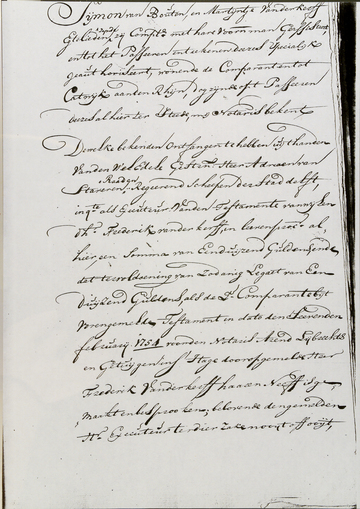 Sijmon van Bouten, en Martijntje Vander Keeff
Egtelieden, zij Compte met haar Voorn: man geassisteert
en tot het Passeeren en teekenen deeses Specialijk
geauthoriseert, wonende de Comparanten tot
Catwijk aan den Rhijn, dog zijnde ten Passeeren
deeses alhier ter Steede mij Notaris bekent.
Dewelke bekenden, Ontfangen te hebben uijt handen
Vanden Wel Edele Gestr: Heer Adriaen van
Raadt en
Stareren, Regeerend Schepen Der Stad delft,
in qte als Executeur Vanden Testamente van wijlen
d'Hr Frederik vander keeff in Leven
hier, een Somma van Eenduijzend Guldens, Ende
dat ter voldoening van Zodanig Legaat van Een
Duijzend Guldens, als de Comparante bij
Testament in dato den Seevenden
februarij 1754 voor den Notaris Arend Lijbrechts
en Getuijgen in s' Hage door opgemelde Heer
Frederik Vander keeff haaren Neeff is ge-
maakt en besprooken, belovende den gemelden
Hr Executeur ter dier zake nooijt off ooijt,